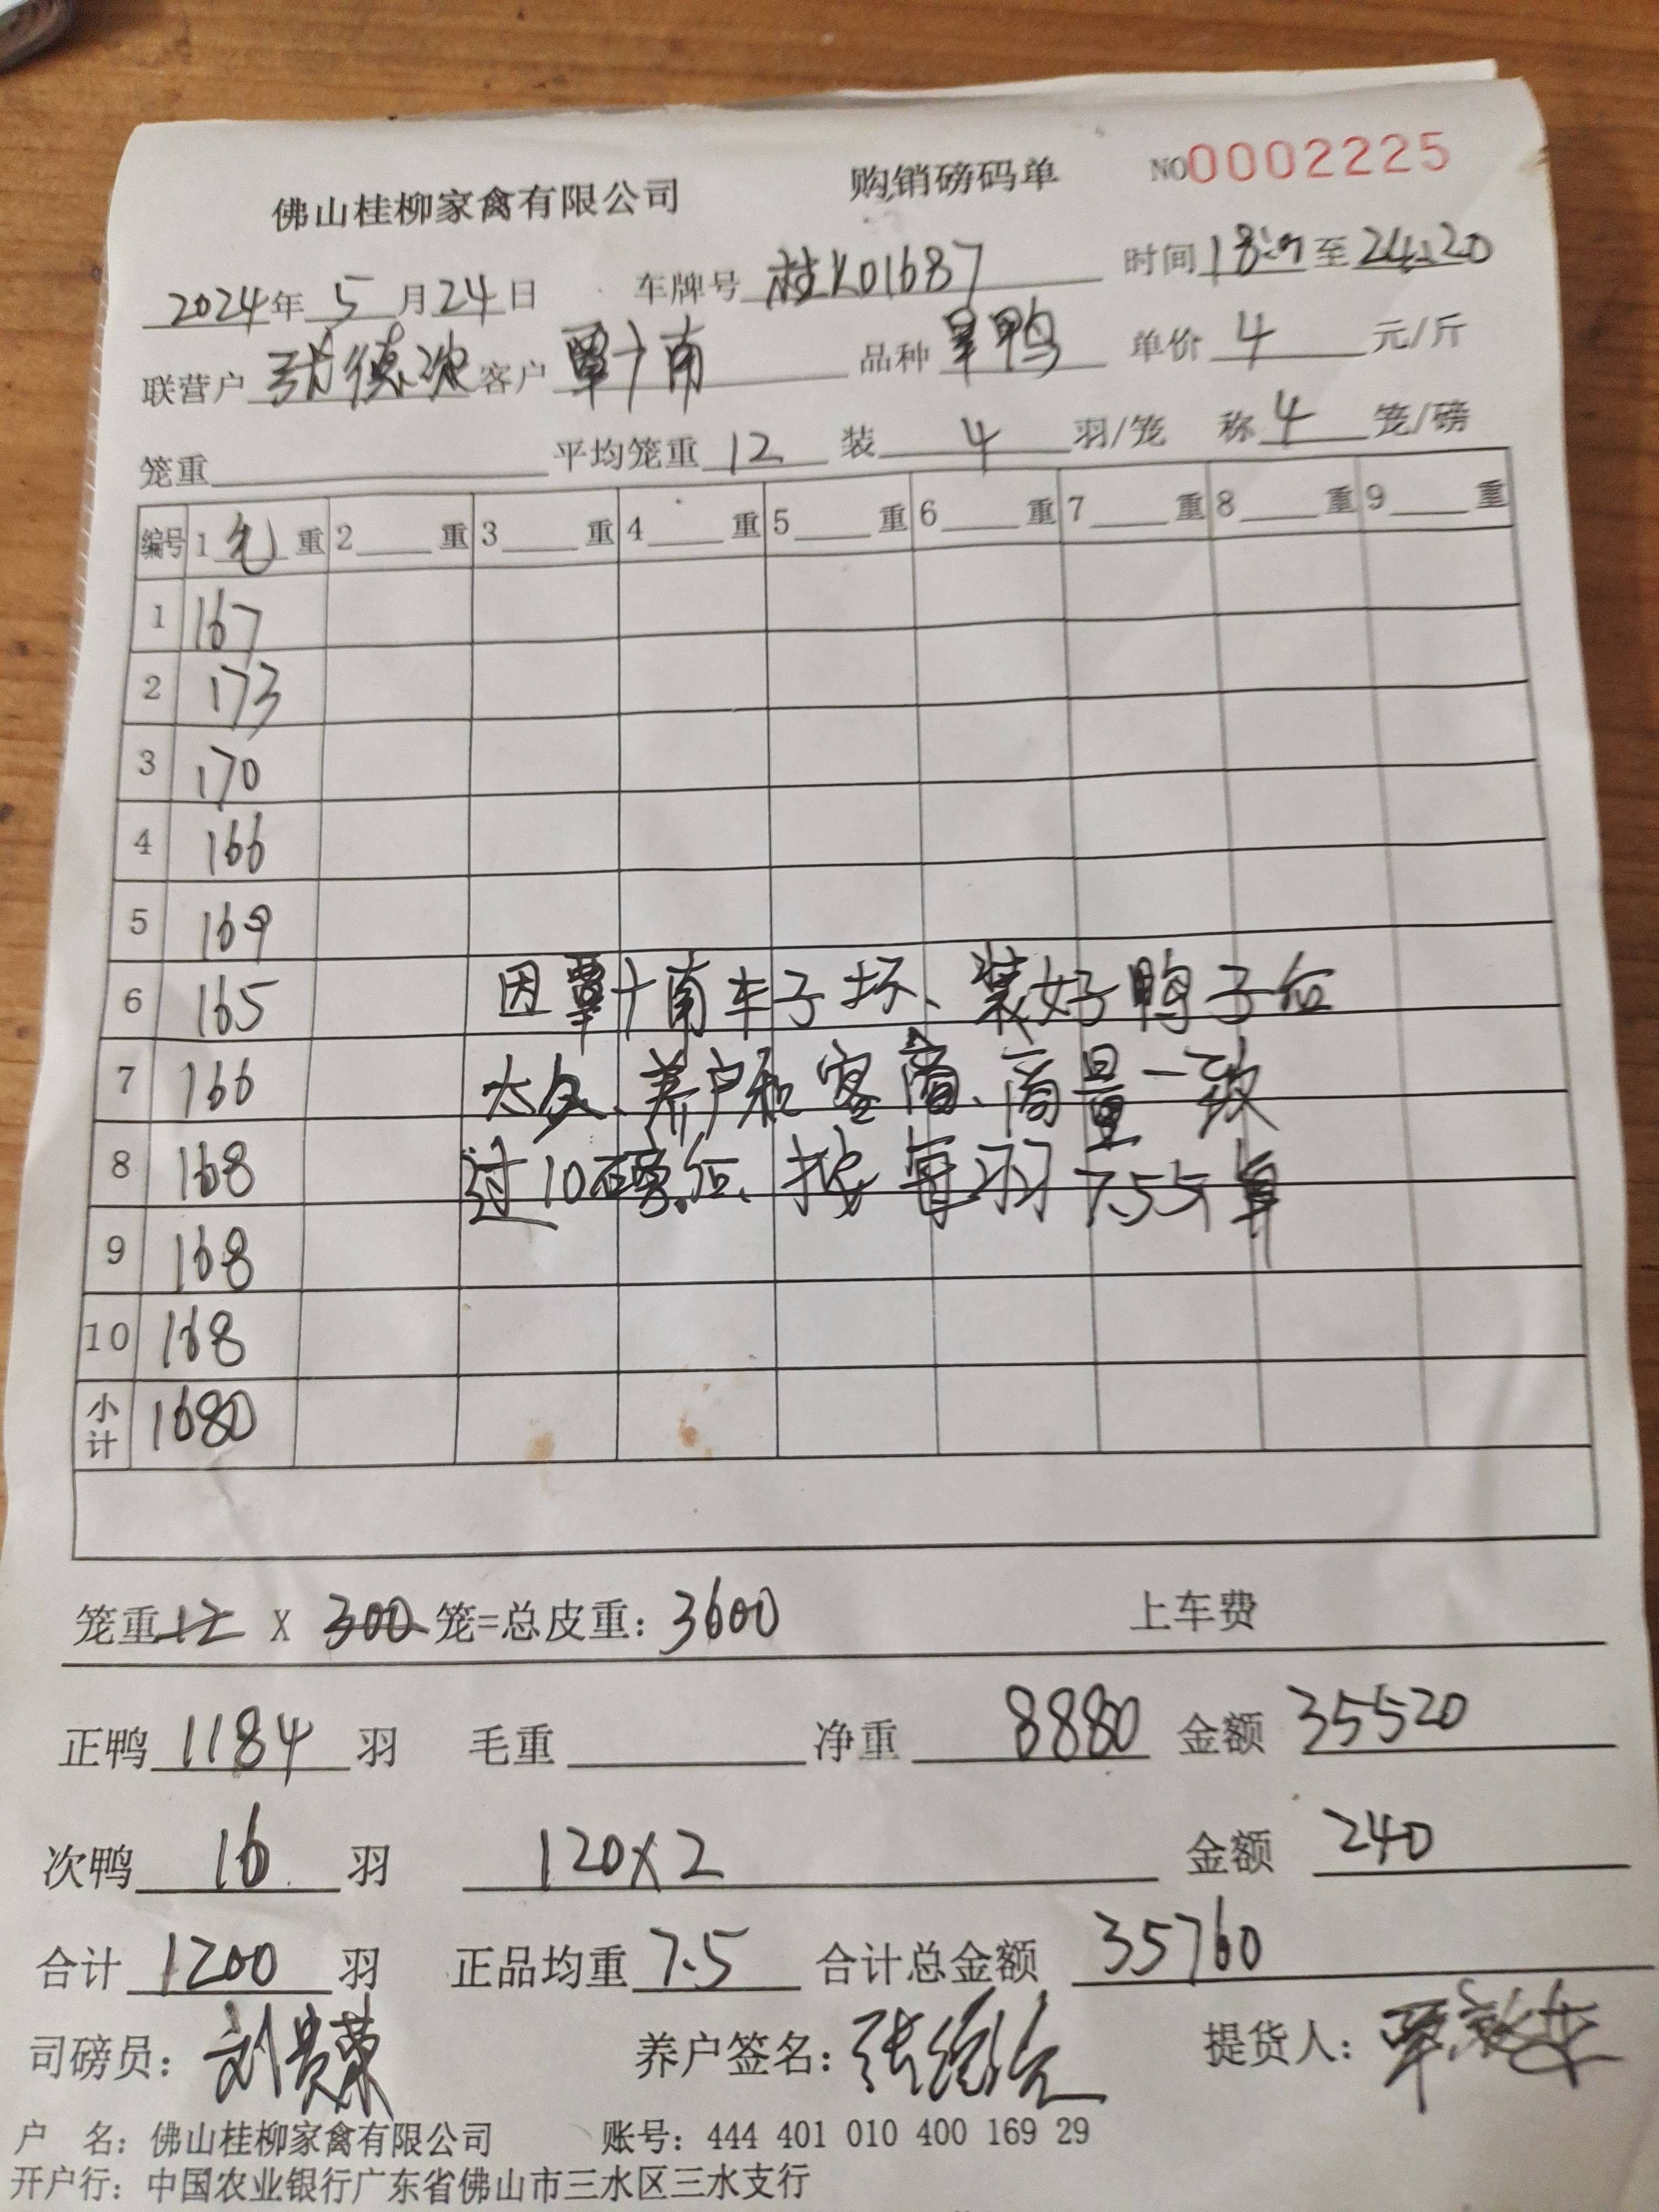 佛山桂柳家禽有限公司 购销磅码单 NO0002225
2024年 5 月 24 日 车牌号 桂K01687 时间 18: 至 24:20
联营户 张德 客户 覃十南 品种 旱鸭 单价 4 元/斤
笼重 平均笼重 12 装 4 羽/笼 称 4 笼/磅
编号 1 毛 重 2 重 3 重 4 重 5 重 6 重 7 重 8 重 9 重
1 167
2 173
3 170
4 166
5 169
6 165 因覃十南车子坏、装好鸭子后
7 166 太久、养户和客商、商量一致
8 168 过10磅后、按每羽7.5斤算
9 168
10 168
小计 1680
笼重12 X 300 笼=总皮重: 3600 上车费
正鸭 1184 羽 毛重 净重 8880 金额 35520
次鸭 16 羽 120x2 金额 240
合计 1200 羽 正品均重 7.5 合计总金额 35760
司磅员: 刘贵荣 养户签名: 张德 提货人: 覃
户 名: 佛山桂柳家禽有限公司 账号: 444 401 010 400 169 29
开户行: 中国农业银行广东省佛山市三水区三水支行